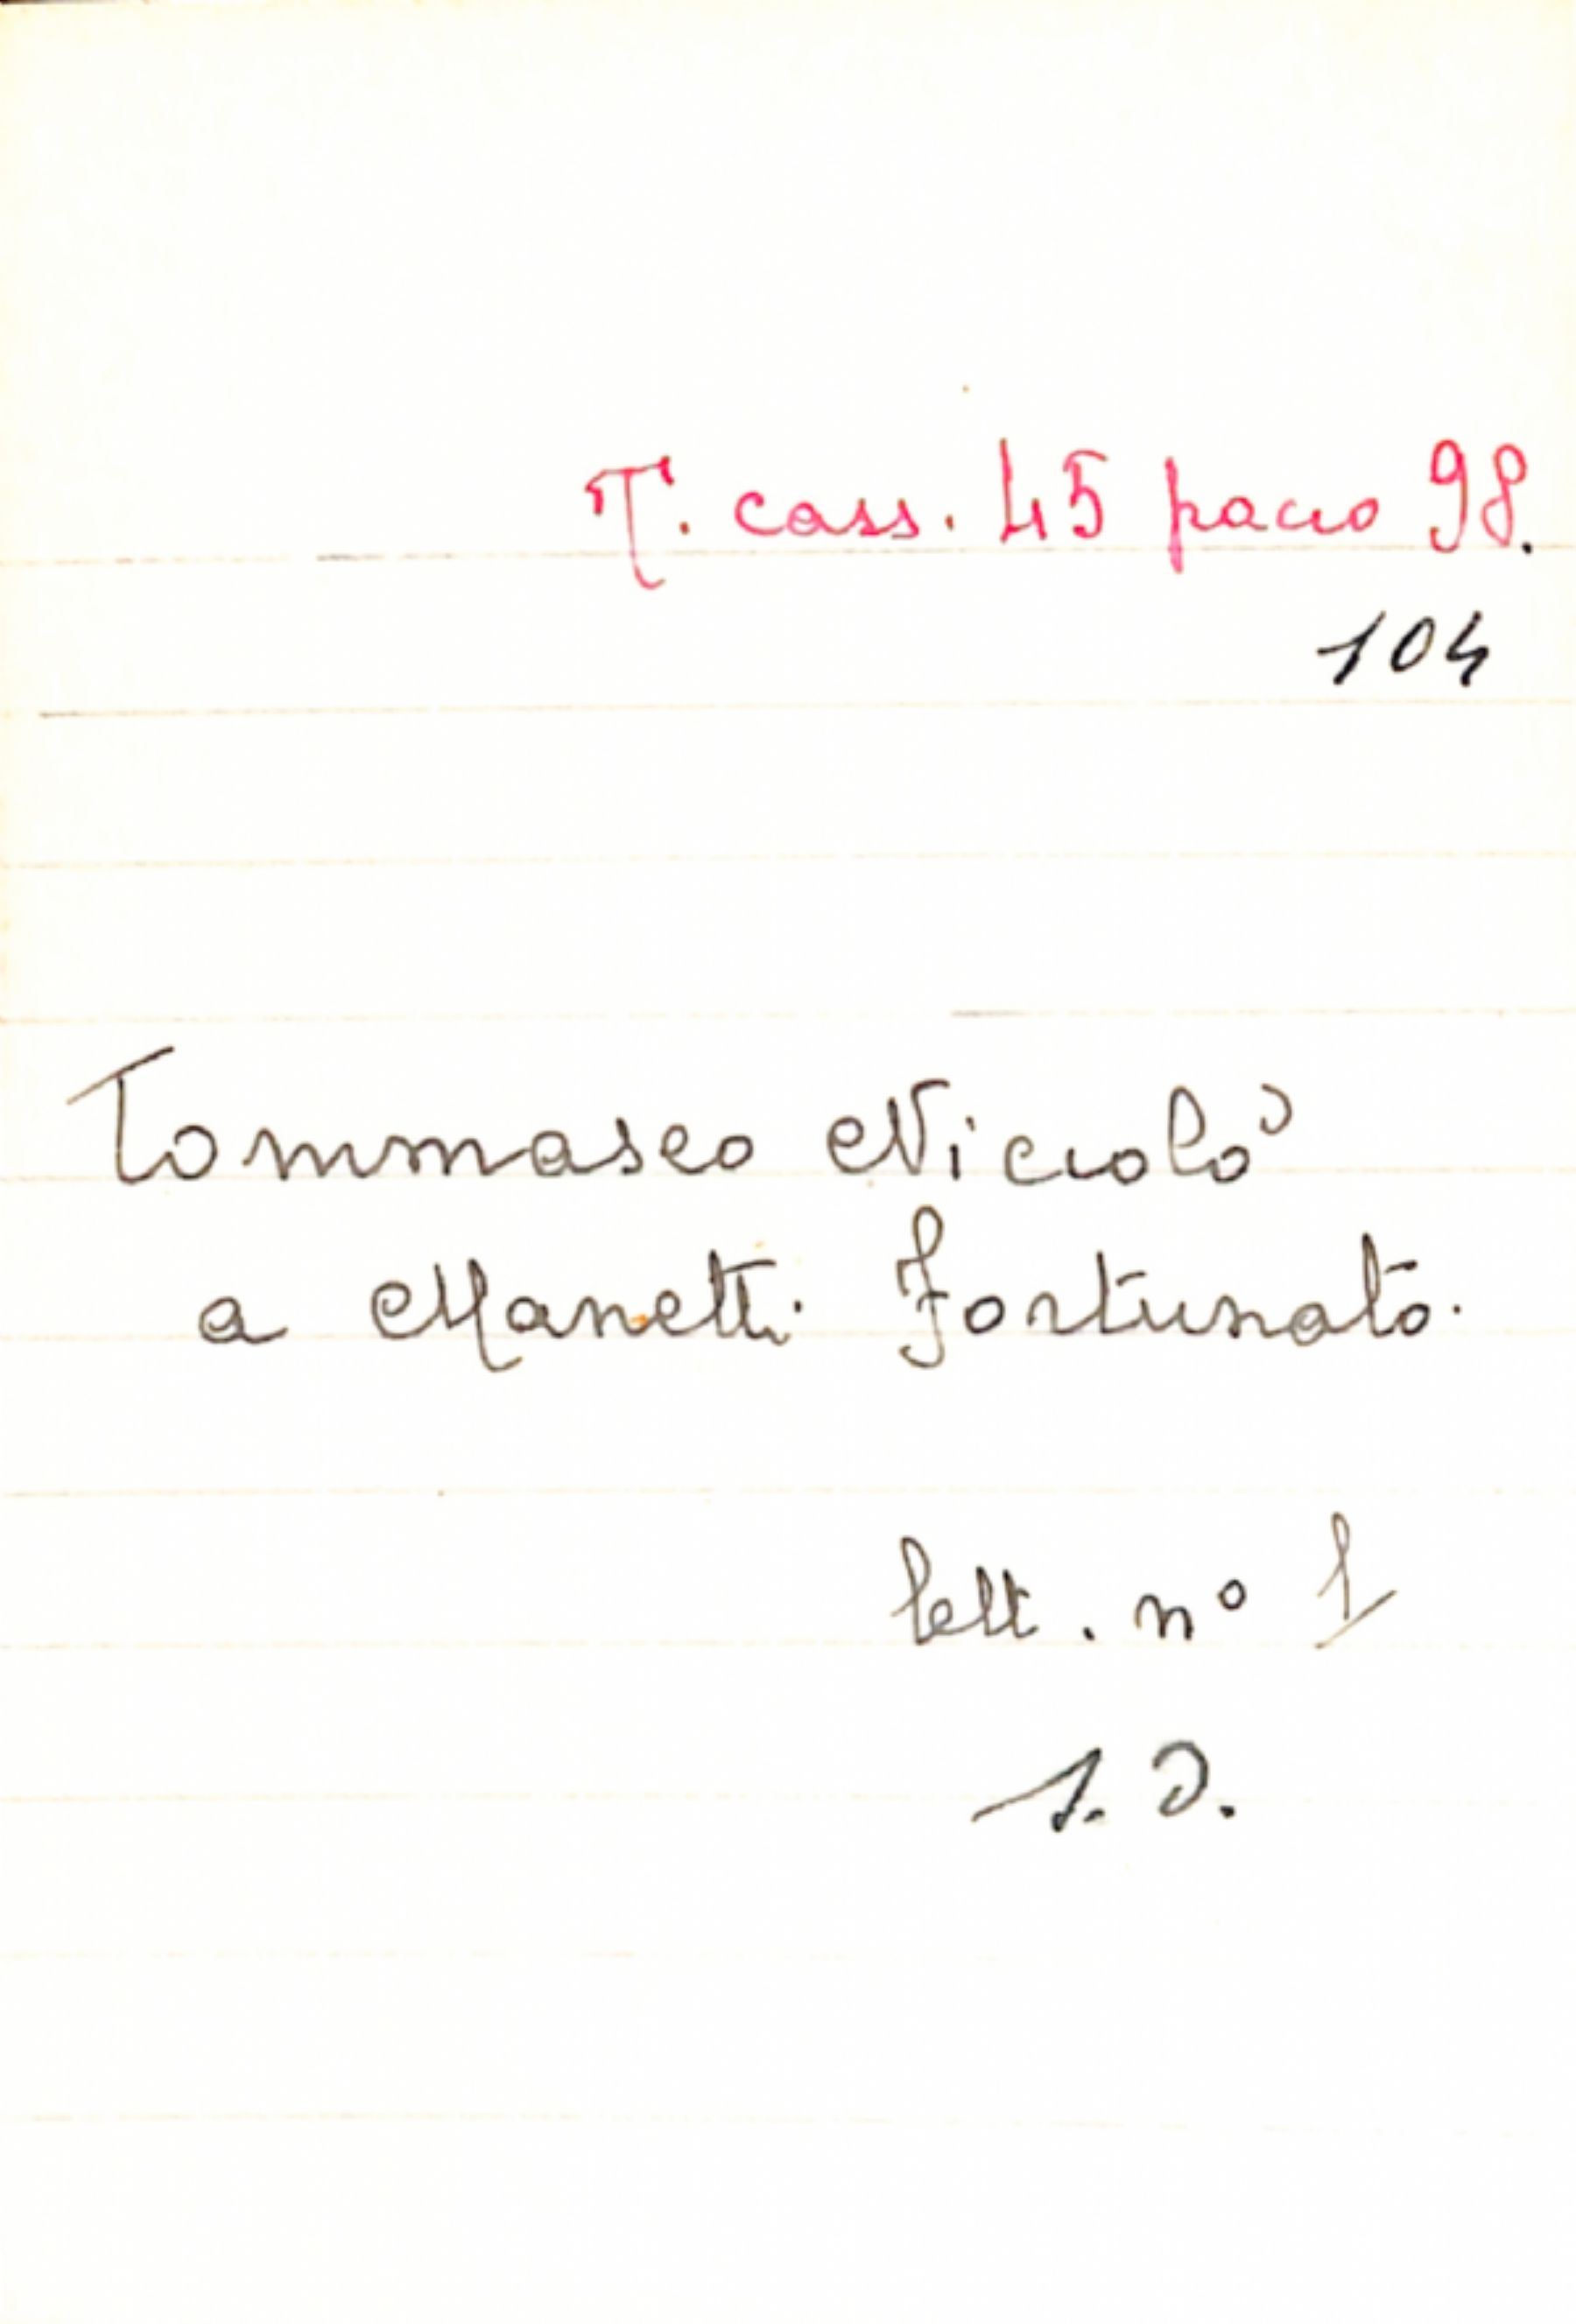 T. cass. 45 pacco 98.
104
Tommaseo Niccolò
a Manetti Fortunato.
lett. nº 1
s. d.